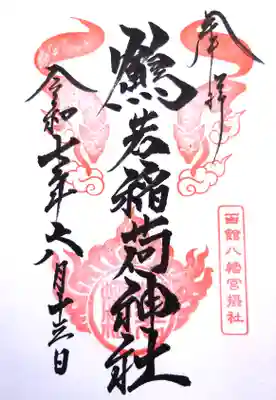 奉拝
鶴若稲荷神社
函館八幡宮摂社
令和七年六月十三日